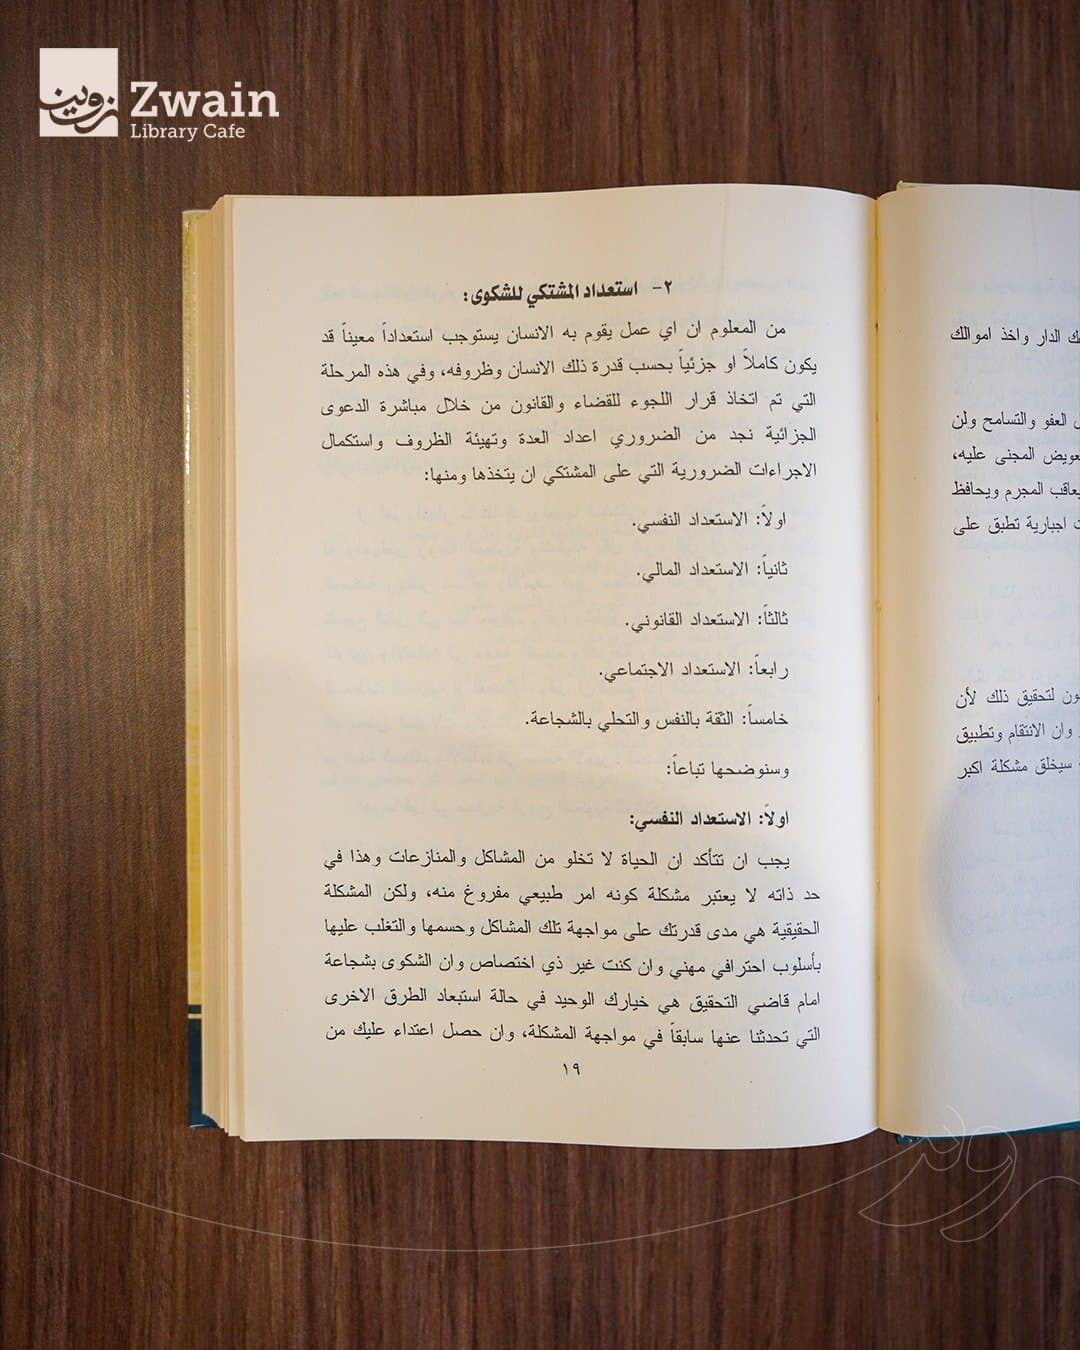 زوين
Zwain
Library Cafe
٢- استعداد المشتكي للشكوى:
من المعلوم ان اي عمل يقوم به الانسان يستوجب استعداداً معيناً قد
يكون كاملاً او جزئياً بحسب قدرة ذلك الانسان وظروفه، وفي هذه المرحلة
التي تم اتخاذ قرار اللجوء للقضاء والقانون من خلال مباشرة الدعوى
الجزائية نجد من الضروري اعداد العدة وتهيئة الظروف واستكمال
الاجراءات الضرورية التي على المشتكي ان يتخذها ومنها:
اولاً: الاستعداد النفسي.
ثانياً: الاستعداد المالي.
ثالثاً: الاستعداد القانوني.
رابعاً: الاستعداد الاجتماعي.
خامساً: الثقة بالنفس والتحلي بالشجاعة.
وسنوضحها تباعاً:
اولاً: الاستعداد النفسي:
يجب ان تتأكد ان الحياة لا تخلو من المشاكل والمنازعات وهذا في
حد ذاته لا يعتبر مشكلة كونه امر طبيعي مفروغ منه، ولكن المشكلة
الحقيقية هي مدى قدرتك على مواجهة تلك المشاكل وحسمها والتغلب عليها
بأسلوب احترافي مهني وان كنت غير ذي اختصاص وان الشكوى بشجاعة
امام قاضي التحقيق هي خيارك الوحيد في حالة استبعاد الطرق الاخرى
التي تحدثنا عنها سابقاً في مواجهة المشكلة، وان حصل اعتداء عليك من
١٩
الدار واخذ اموالك
العفو والتسامح ولن
المجنى عليه،
يعاقب المجرم ويحافظ
اجبارية تطبق على
لتحقيق ذلك لأن
وان الانتقام وتطبيق
سيخلق مشكلة اكبر